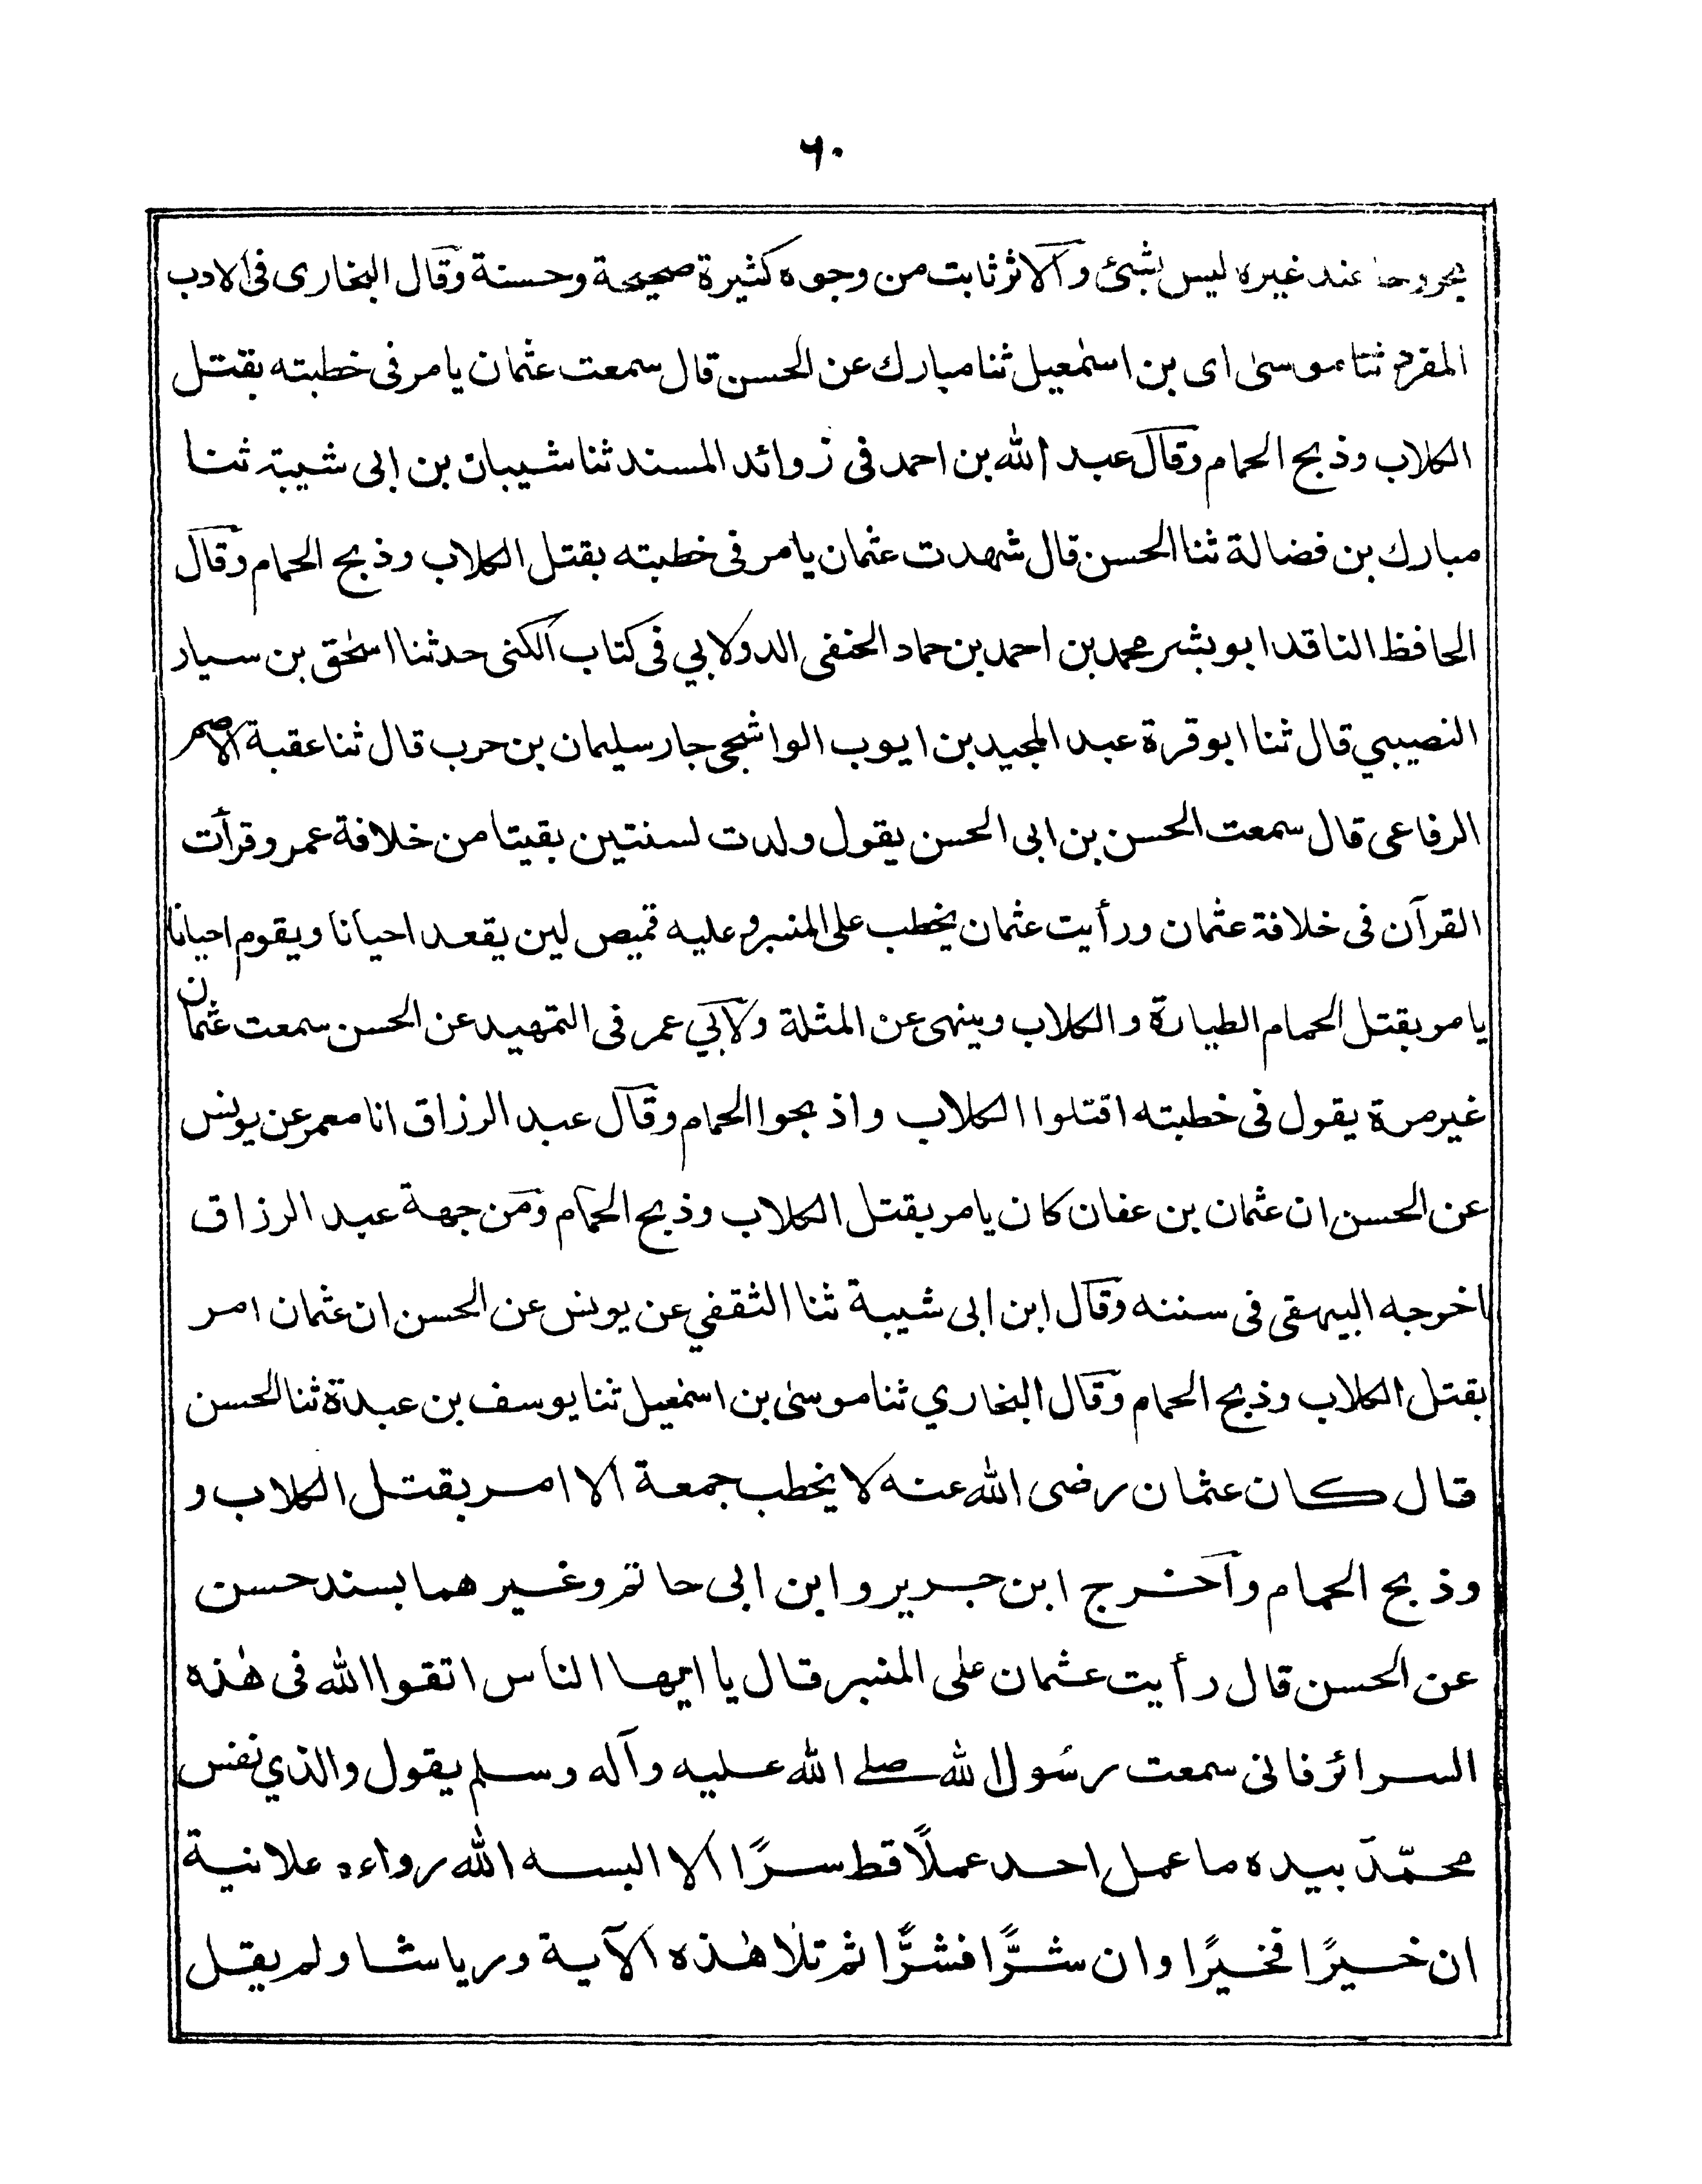 ٦٠
مجروحا عند غيره ليس بشئ والاثر ثابت من وجوه كثيرة صحيحة وحسنة وقال البخارى فى الادب
المفرد ثنا موسىٰ اى بن اسمٰعيل ثنا مبارك عن الحسن قال سمعت عثمان يامر فى خطبته بقتل
الكلاب وذبح الحمام وقال عبد الله بن احمد فى زوائد المسند ثنا شيبان بن ابى شيبة ثنا
مبارك بن فضالة ثنا الحسن قال شهدت عثمان يامر فى خطبته بقتل الكلاب وذبح الحمام وقال
الحافظ الناقد ابو بشر محمد بن احمد بن حماد الحنفى الدولابي فى كتاب الكنى حدثنا اسحٰق بن سيار
النصيبي قال ثنا ابو قرة عبد المجيد بن ايوب الواشجى جار سليمان بن حرب قال ثنا عقبة الاصم
الرفاعى قال سمعت الحسن بن ابى الحسن يقول ولدت لسنتين بقيتا من خلافة عمر وقرأت
القرآن فى خلافة عثمان ورأيت عثمان يخطب على المنبر وعليه قميص لين يقعد احيانا ويقوم احيانا
يامر بقتل الحمام الطيارة والكلاب وينهى عن المثلة ولابي عمر فى التمهيد عن الحسن سمعت عثمان
غير مرة يقول فى خطبته اقتلوا الكلاب واذبحوا الحمام وقال عبد الرزاق انا معمر عن يونس
عن الحسن ان عثمان بن عفان كان يامر بقتل الكلاب وذبح الحمام ومن جهة عبد الرزاق
اخرجه البيهقى فى سننه وقال ابن ابى شيبة ثنا الثقفي عن يونس عن الحسن ان عثمان امر
بقتل الكلاب وذبح الحمام وقال البخاري ثنا موسىٰ بن اسمٰعيل ثنا يوسف بن عبدة ثنا الحسن
قال كان عثمان رضى الله عنه لا يخطب جمعة الا امر بقتل الكلاب و
وذبح الحمام وآخرج ابن جرير وابن ابى حاتم وغيرهما بسند حسن
عن الحسن قال رأيت عثمان على المنبر قال يا ايها الناس اتقوا الله فى هٰذه
السرائر فانى سمعت رسُول الله صلے الله عليه وآله وسلم يقول والذي نفس
محمّد بيده ما عمل احد عملًا قط سرًا الا البسه الله رواءه علانية
ان خيرًا فخيرًا وان شرًّا فشرًّا ثم تلا هٰذه الآية ورياشا ولم يقل